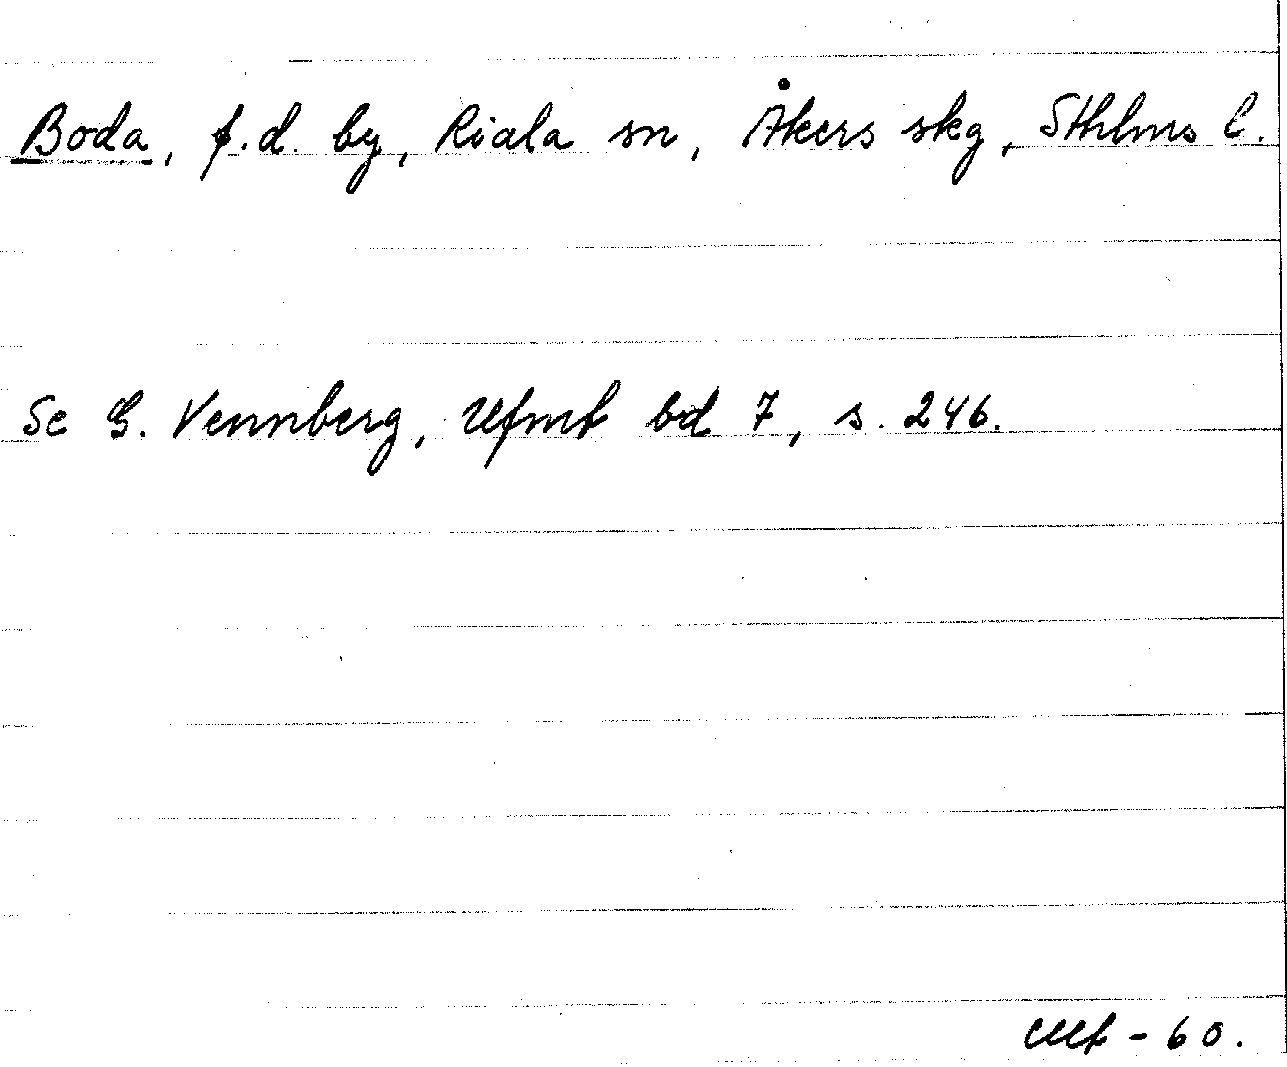 Boda, f.d. by, Riala sn, Åkers skg, Sthlms l.
Se G. Vennberg, Ufmf bd 7, s. 246.
- 60.